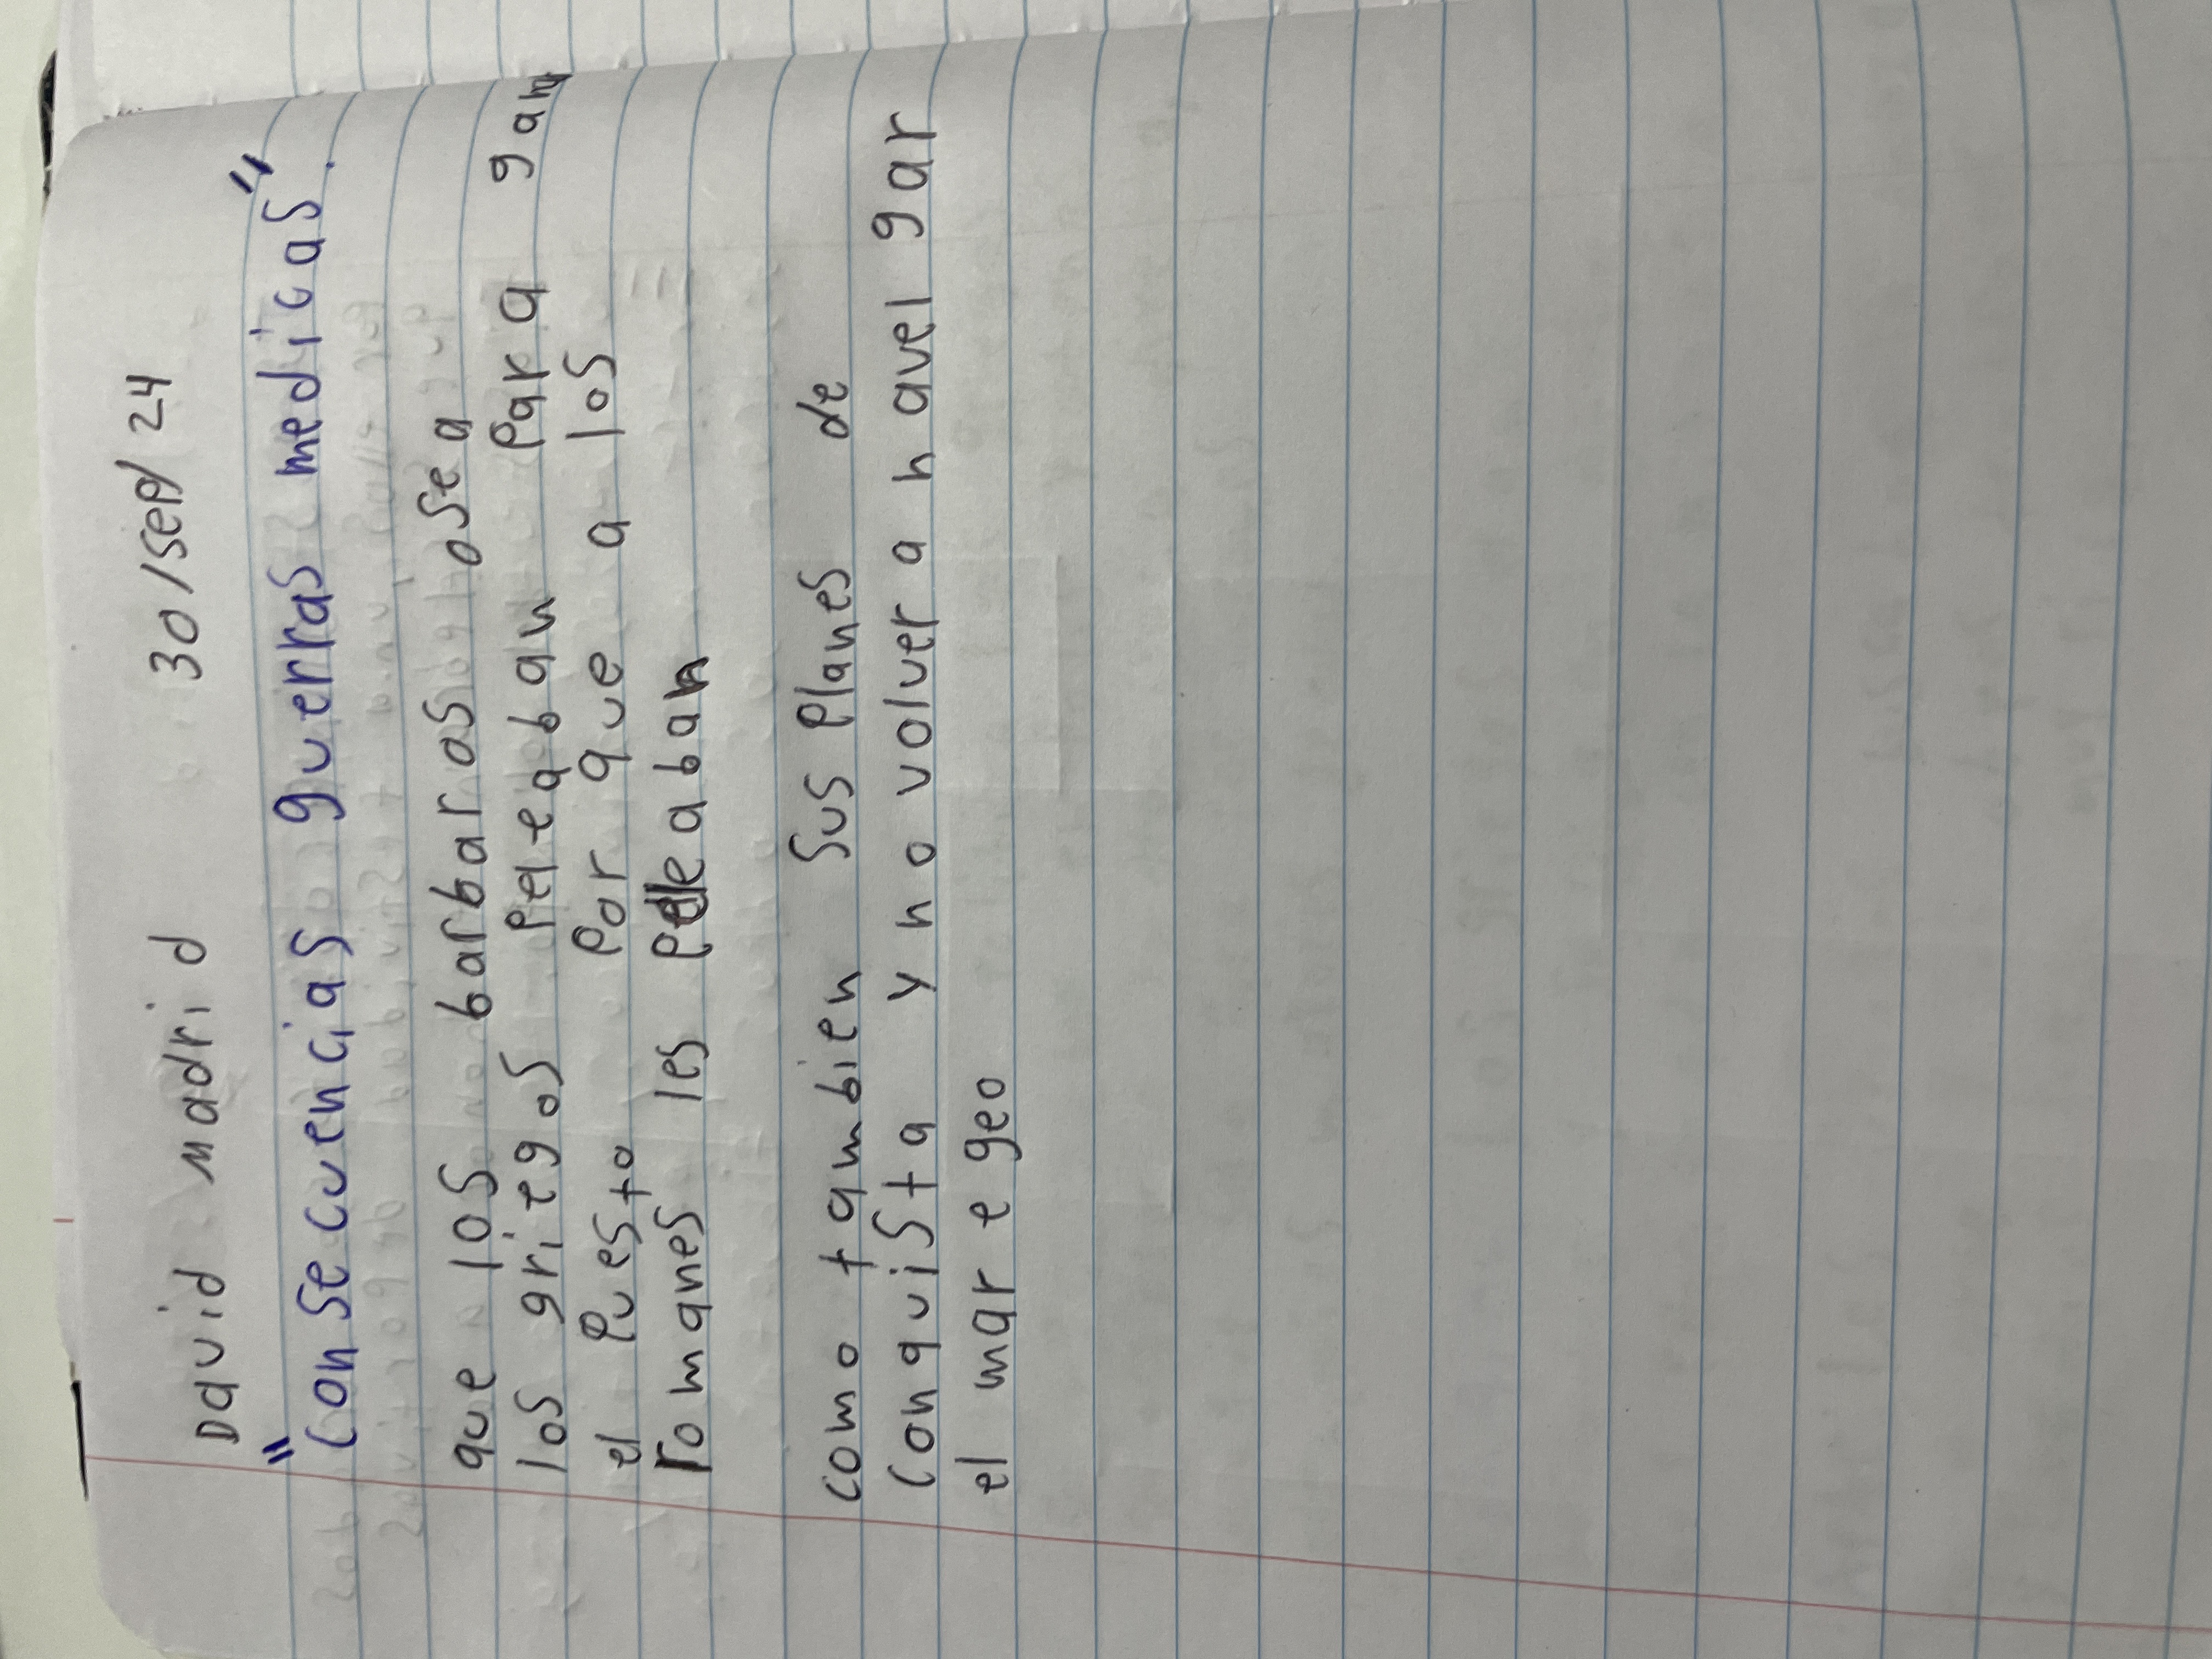 David Madrid 30/sep/24
"Consecuencias guerras medicas".
que los barbaros osea
los griegos peleaban para
el puesto por que a los
romanes les peleaban
como tambien sus planes de
conquista y no volver a navelgar
el mar egeo